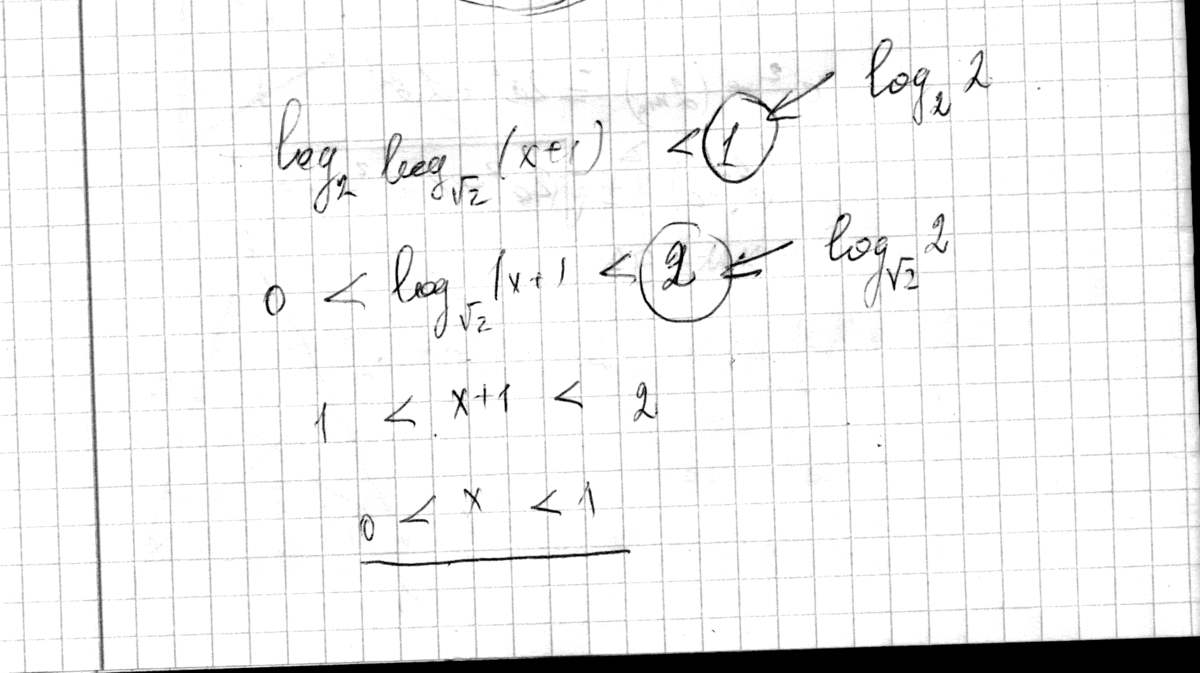 log₂ log_√2 (x+1) < 1 ← log₂ 2
0 < log_√2 (x+1 < 2 ← log_√2 2
1 < x+1 < 2
0 < x < 1